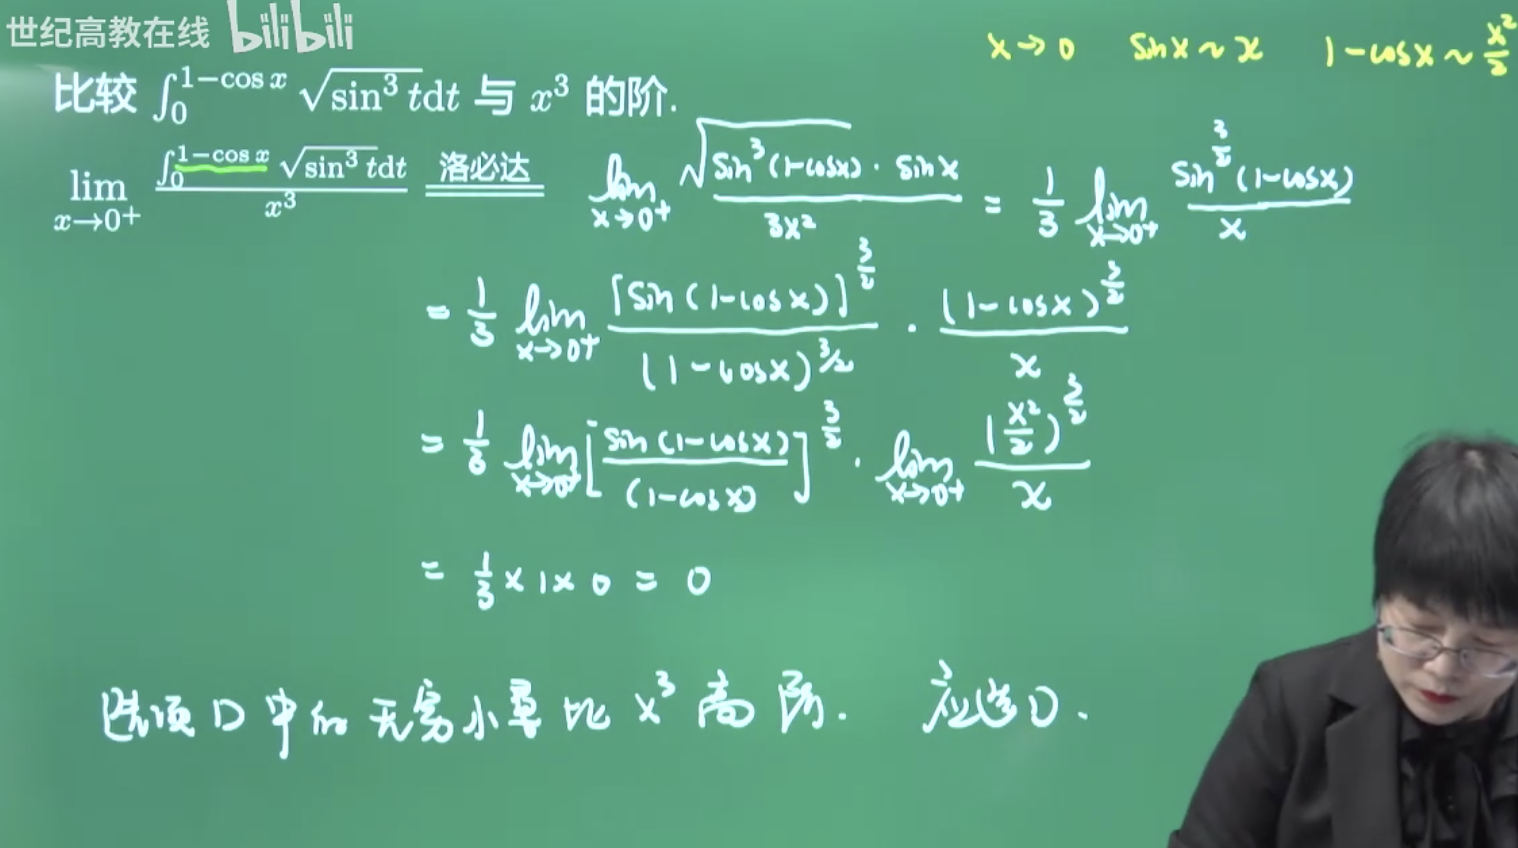 世纪高教在线 bilibili
x→0 sinx~x 1-cosx~x²/2
比较 ∫₀^{1-cos x} √(sin³ t)dt 与 x³ 的阶.
lim_{x→0⁺} (∫₀^{1-cos x} √(sin³ t)dt)/x³ 洛必达 lim_{x→0⁺} (√(sin³(1-cosx)) · sinx)/(3x²) = 1/3 lim_{x→0⁺} (sin^{3/2}(1-cosx))/x
= 1/3 lim_{x→0⁺} ([sin(1-cosx)]^{3/2})/((1-cosx)^{3/2}) · ((1-cosx)^{3/2})/x
= 1/3 lim_{x→0⁺} [sin(1-cosx)/(1-cosx)]^{3/2} · lim_{x→0⁺} ((x²/2)^{3/2})/x
= 1/3 × 1 × 0 = 0
选项D中的无穷小量比 x³ 高阶. 应选D.